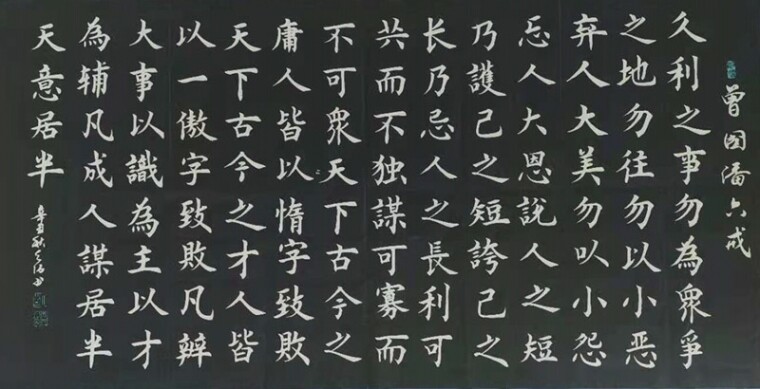 曾國潘六戒
久利之事勿為衆爭
之地勿往勿以小恶
弃人大美勿以小怨
忘人大恩說人之短
乃護己之短誇己之
长乃忌人之長利可
共而不独謀可寡而
不可衆天下古今之
庸人皆以惰字致敗
天下古今之才人皆
以一傲字致敗凡辨
大事以識為主以才
為輔凡成人謀居半
天意居半